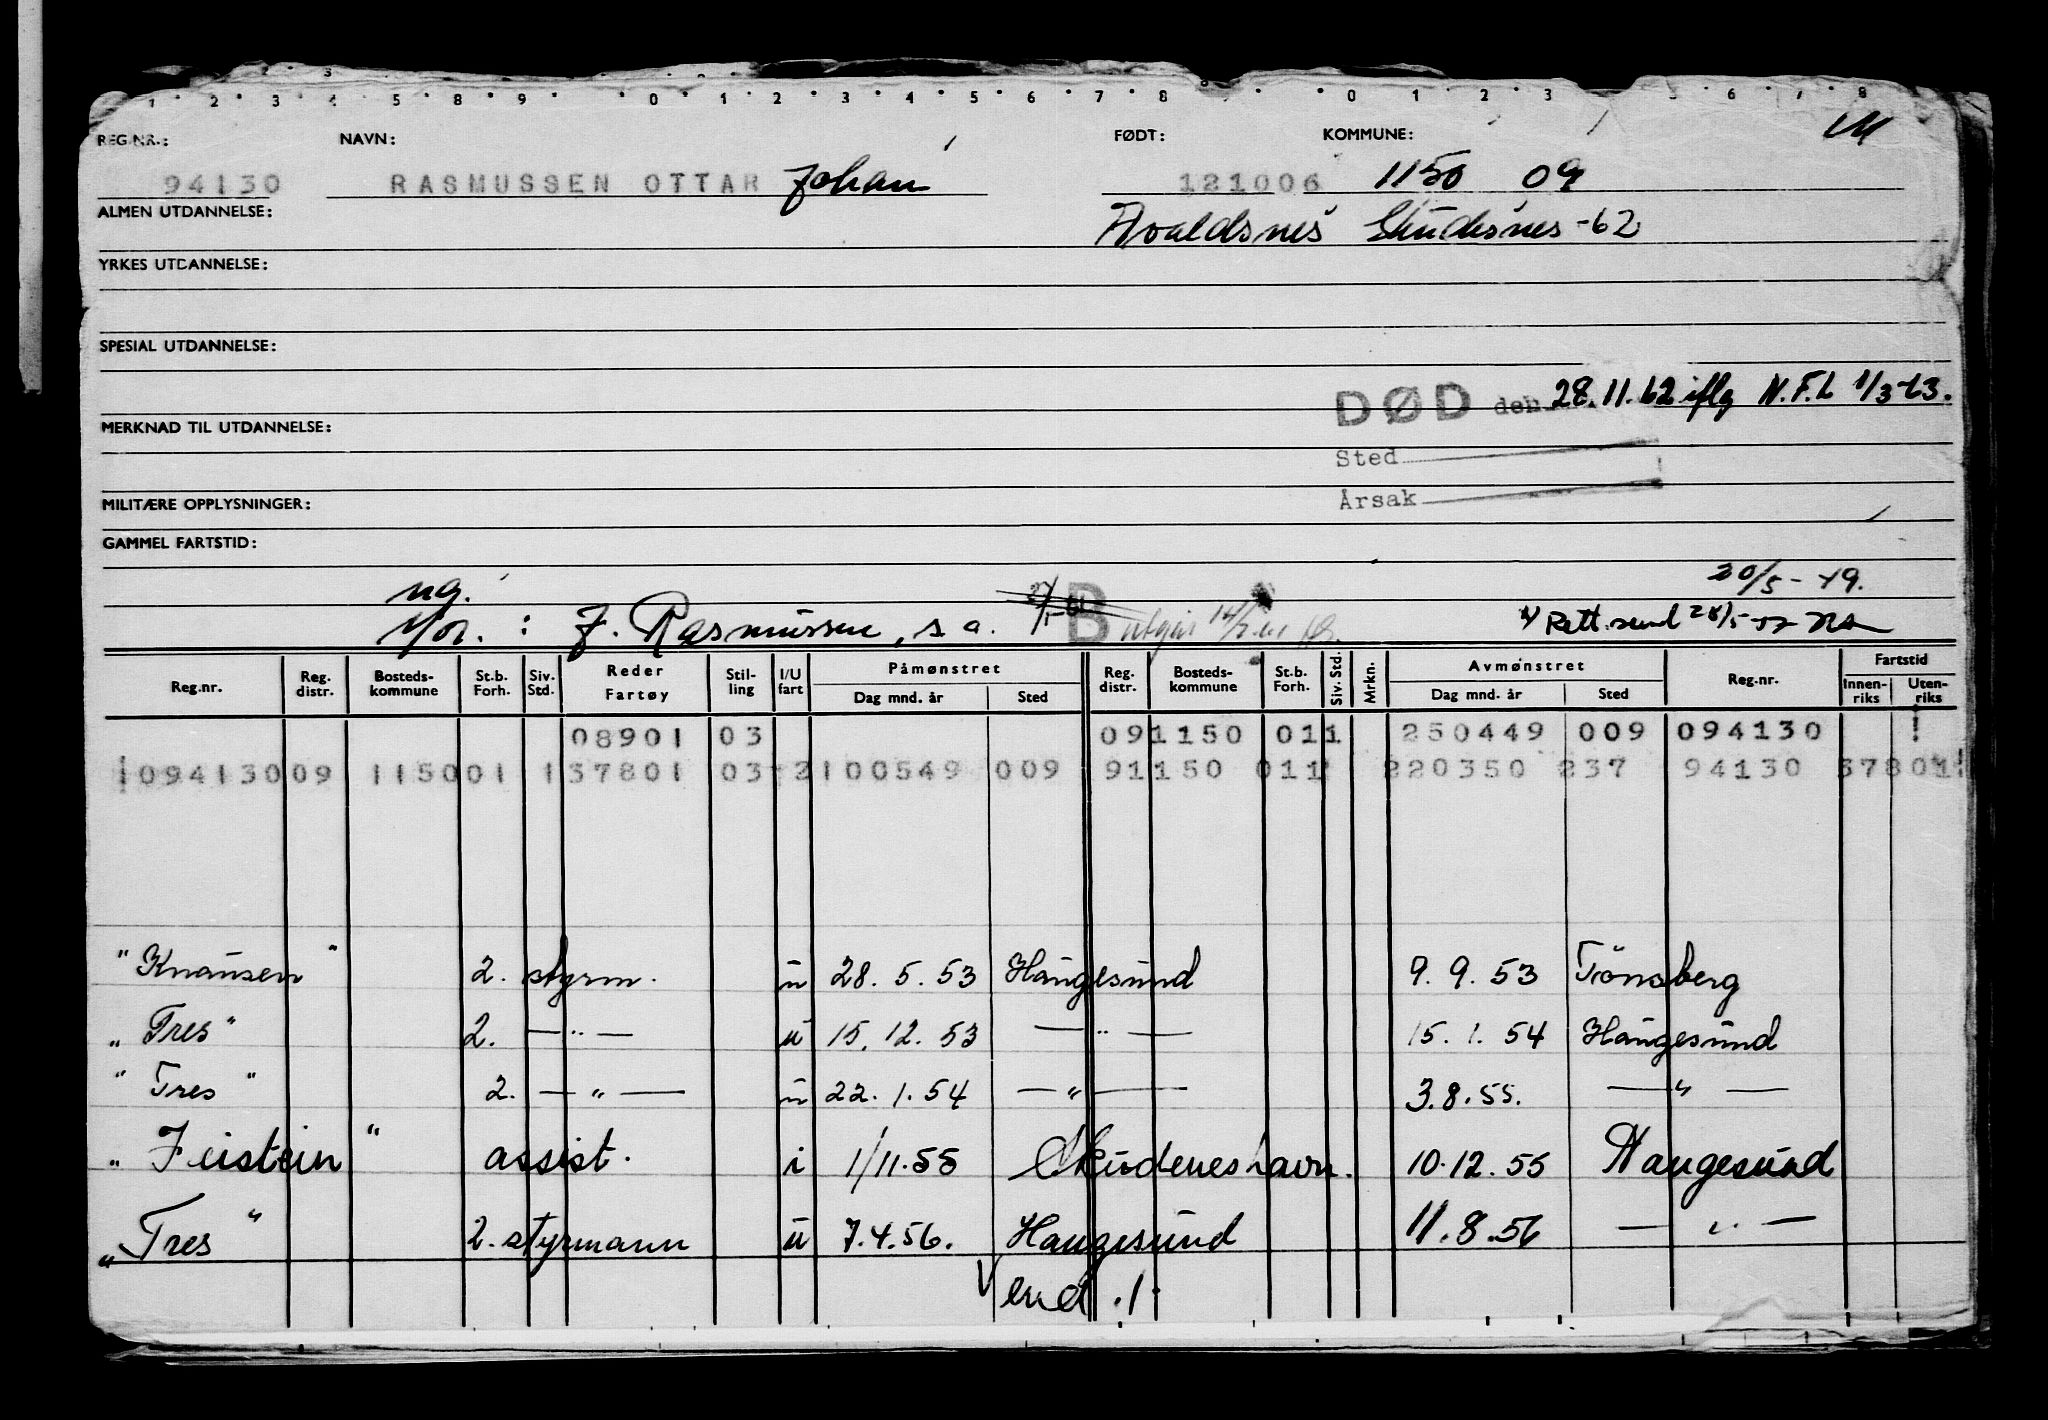 REG.NR.: NAVN: FØDT: KOMMUNE:
94130 RASMUSSEN OTTAR Johan 121006 1150 09
ALMEN UTDANNELSE: Avaldsnes Skudesnes -62
YRKES UTDANNELSE:
SPESIAL UTDANNELSE:
DØD den 28.11.62 iflg N.F.L 1/3-63.
MERKNAD TIL UTDANNELSE:
Sted
Årsak
MILITÆRE OPPLYSNINGER:
GAMMEL FARTSTID:
ug. 20/5-49.
Mor. : J. Rasmussen, s a. B utgår
Reg.nr. Reg. distr. Bosteds-kommune St.b. Forh. Siv. Std. Reder Fartøy Stil-ling I/U fart Påmønstret Dag mnd. år Sted Reg. distr. Bosteds-kommune St.b. Forh. Siv. Std. Mrkn. Avmønstret Dag mnd. år Sted Reg.nr. Fartstid Innen-riks Uten-riks
08901 03 091150 011 250449 009 094130
09413009 115001 137801 03-2 100549 009 91150 011 220350 237 94130 37801
"Knausen" 2. styrm. u 28. 5. 53 Haugesund 9. 9. 53 Tönsberg
"Tres" 2. — " — u 15. 12. 53 — " — 15. 1. 54 Haugesund
"Tres" 2. — " — u 22. 1. 54 — " — 3.8.55. — " —
"Feistein" assist. i 1/11.55 Skudeneshavn. 10.12.55 Haugesund
"Tres" 2. styrmann u 7.4.56. Haugesund 11.8.56 — " —
Vend ./.